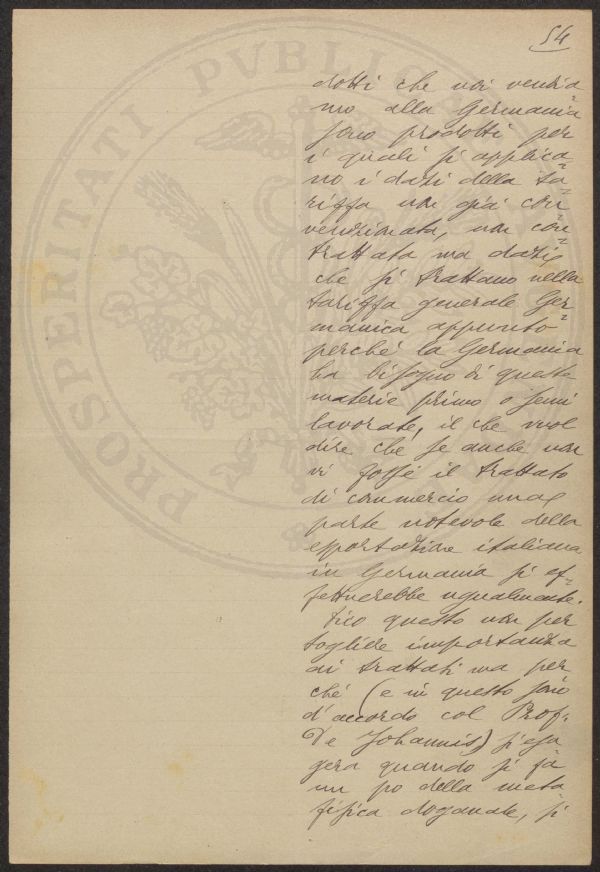 54
PROSPERITATI PVBLIC
dotti che noi vendia=
mo alla Germania
sono prodotti per
i quali si applica=
no i dazi della ta=
riffa non già con=
venzionata, non con=
trattata ma dazi
che si trattano nella
tariffa generale Ger=
manica appunto
perché la Germania
ha bisogno di queste
materie prime o semi
lavorate, il che vuol
dire che, se anche non
vi fosse il trattato
di commercio una
parte notevole della
esportazione italiana
in Germania si ef=
fettuerebbe ugualmente.
Dico questo non per
togliere importanza
ai trattati ma per
ché (e in questo sono
d'accordo col Prof.
De Johannis) si esa
gera quando si fa
un po della meta=
fisica doganale, si